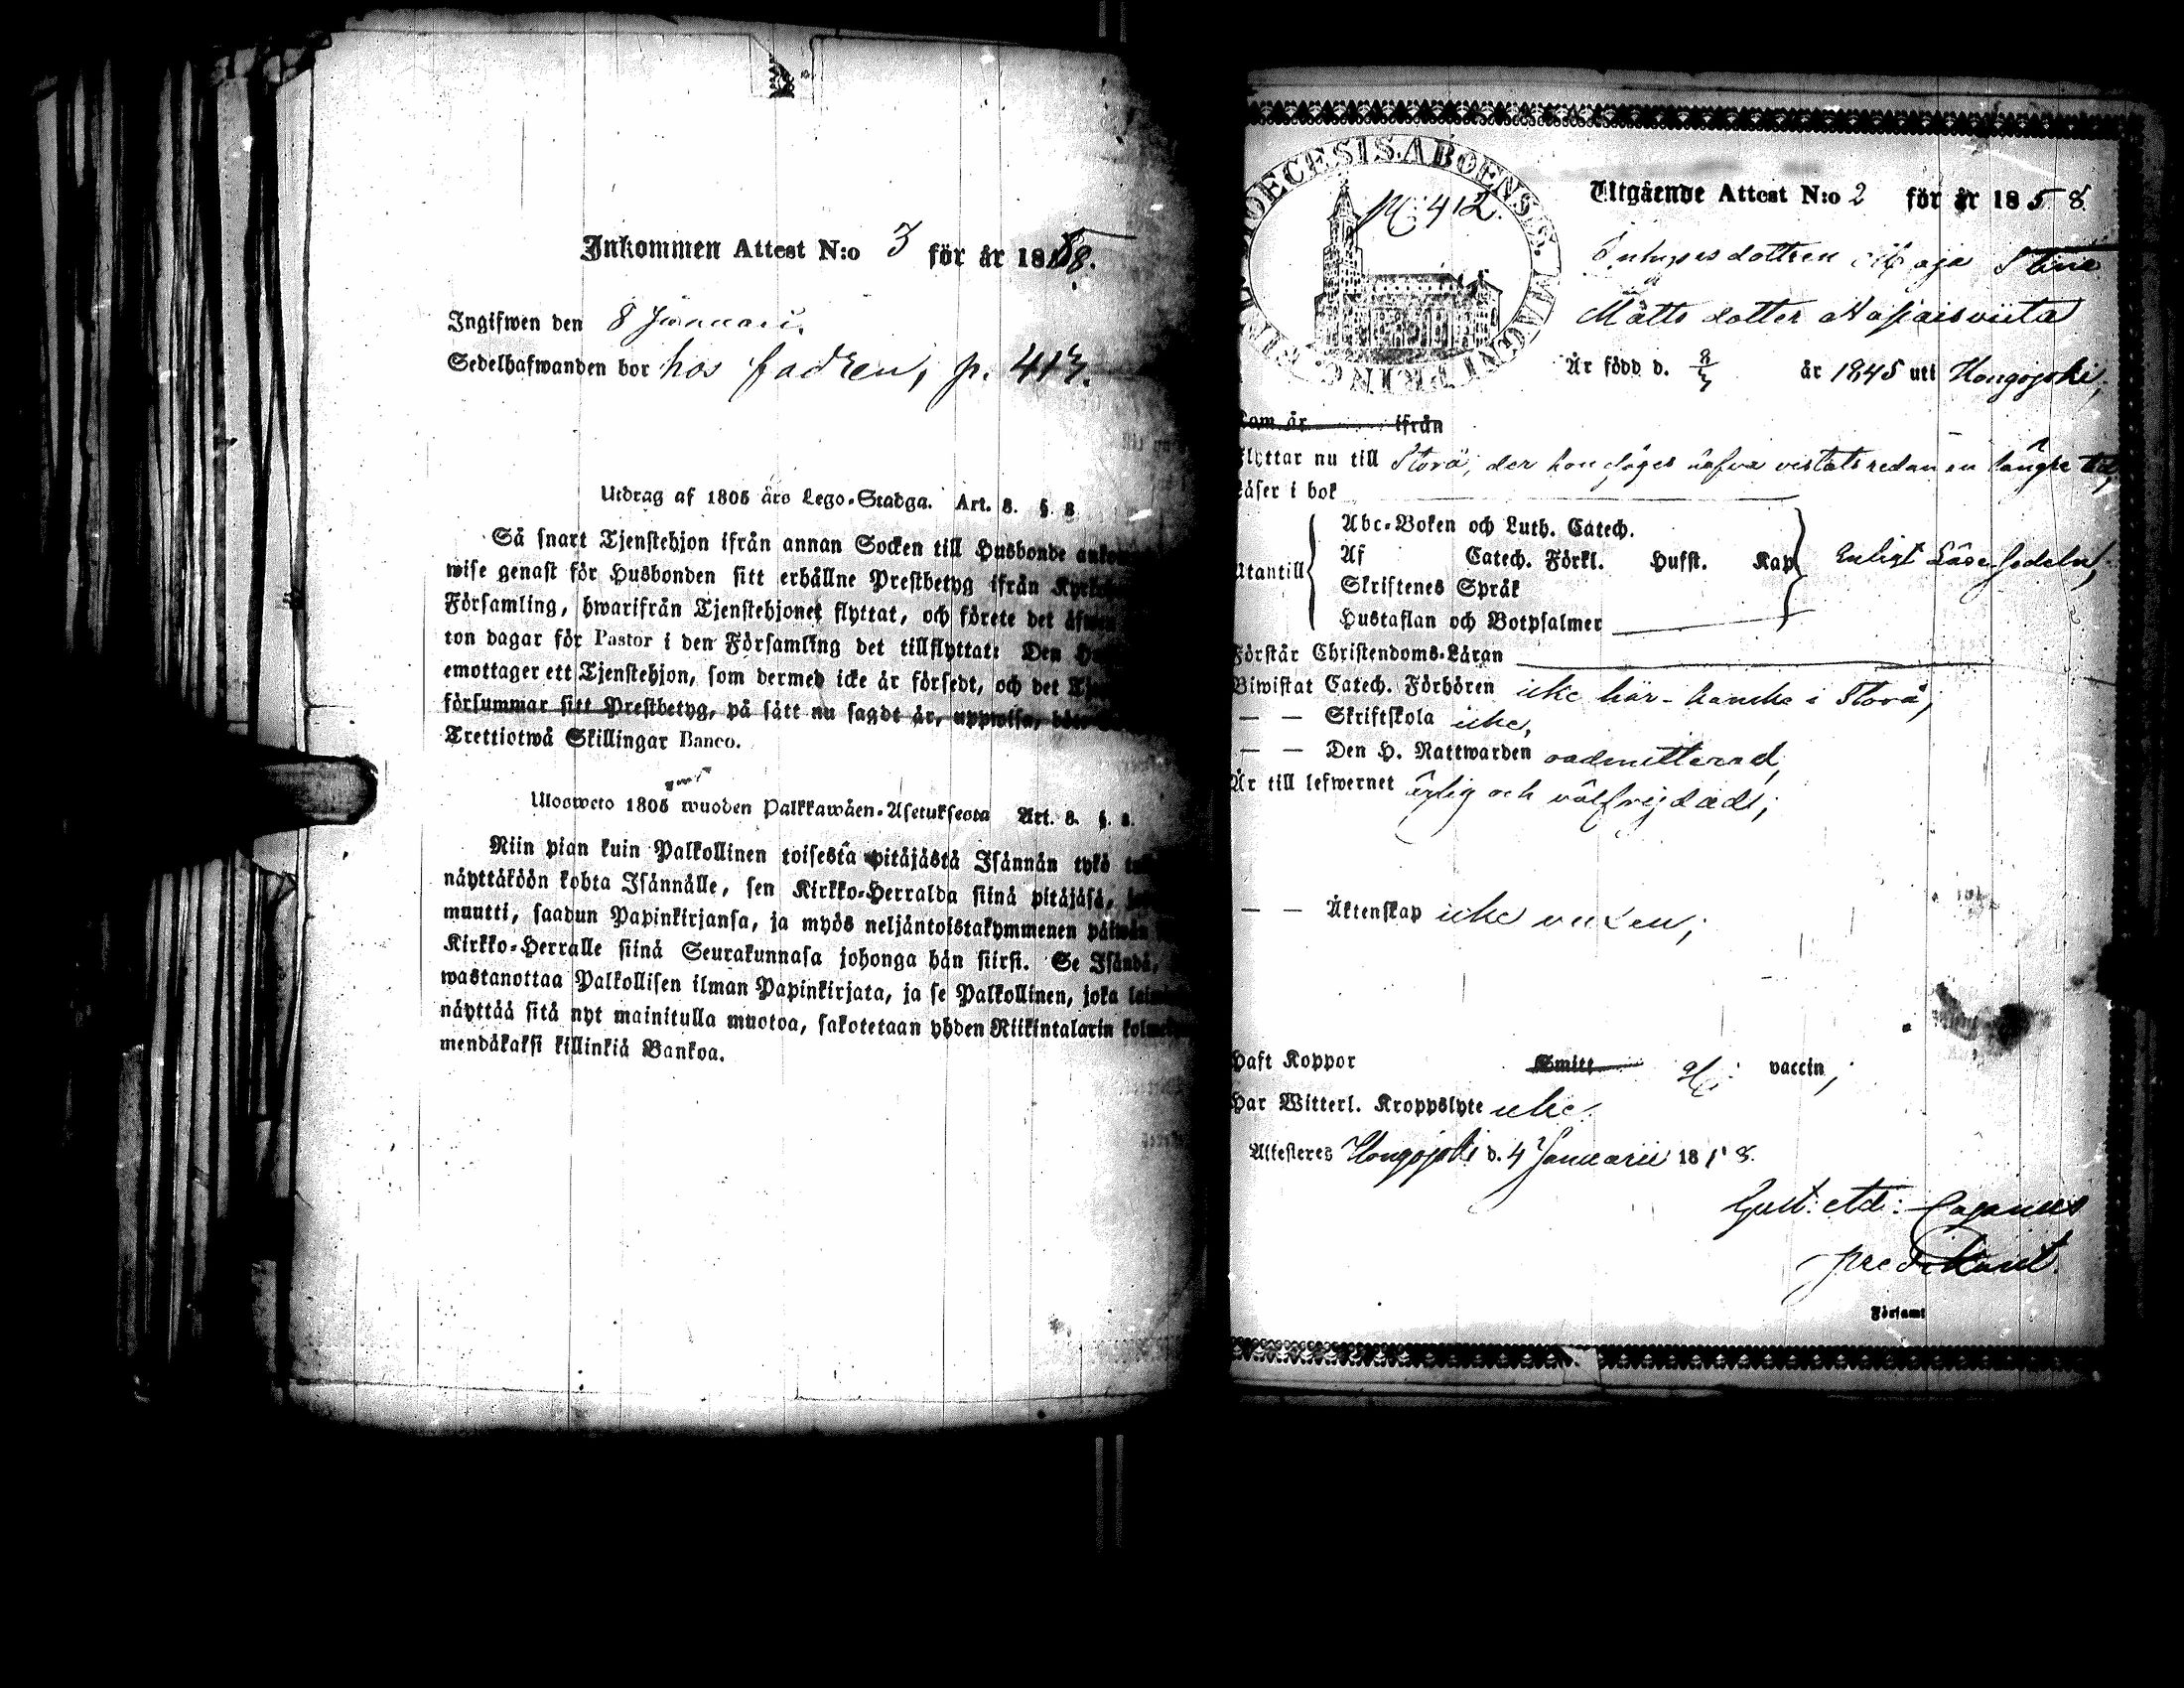 Inkommen Attest N:o 3 för år 1858.
Ingifwen den 8 Januari.
Sedelhafwanden bor hos fadren, p. 413.
Utdrag af 1805 års Lego-Stadga. Art. 8. §. 8
Så snart Tjenstehjon ifrån annan Socken till Husbonde
wise genast för Husbonden sitt erhållne Prestbetyg ifrån
Församling, hwarifrån Tjenstehjonet flyttat, och förete det
ton dagar för Pastor i den Församling det tillflyttat: Den
emottager ett Tjenstehjon, som dermed icke är försedt, och det
försummar sitt Prestbetyg, på sätt nu sagdt är, uppwisa,
Trettiotwå Skillingar Banco.
Ulosweto 1805 wuoden Palkkawäen-Asetuksesta Art. 8. §. 8.
Niin pian kuin Palkollinen toisesta pitäjästä Isännän tykö
näyttäköön kohta Isännälle, sen Kirkko-Herralda siinä pitäjäsä,
muutti, saadun Papinkirjansa, ja myös neljäntoistakymmenen
Kirkko-Herralle siinä Seurakunnasa johonga hän siirsi. Se Isändä,
wastanottaa Palkollisen ilman Papinkirjata, ja se Palkollinen, joka
näyttää sitä nyt mainitulla muotoa, sakotetaan yhden Riikintalarin
mendäkaksi killinkiä Bankoa.
DIOECESIS ABOENSIS. MAGNI PRINC:
N: 412.
Utgående Attest N:o 2 för år 1858.
Inhysesdottren Maja Stina
Matts dotter
Är född d. 8/3 år 1845 uti Hongojoki,
Kom år ifrån
Flyttar nu till Storå, der hon säges hafva vistats redan en längre tid,
Läser i bok
Utantill
Abc-Boken och Luth. Catech.
Af Catech. Förkl. Husst. Kap
Skriftenes Språk
Hustaflan och Botpsalmer
Enligt Läse-sedeln,
Förstår Christendoms-Läran
Biwistat Catech. Förhören icke här - kanske i Storå,
— — Skriftskola icke,
— — Den H. Nattwarden oadmitterad,
Är till lefwernet ärlig och välfrejdad,
— — Äktenskap icke vuxen,
Haft Koppor Smitt vaccin,
Har Witterl. Kroppslyte icke.
Attesteres Hongojoki d. 4 Januarii 1858.
Gust. Ad: Cajanus
predikant.
Församl